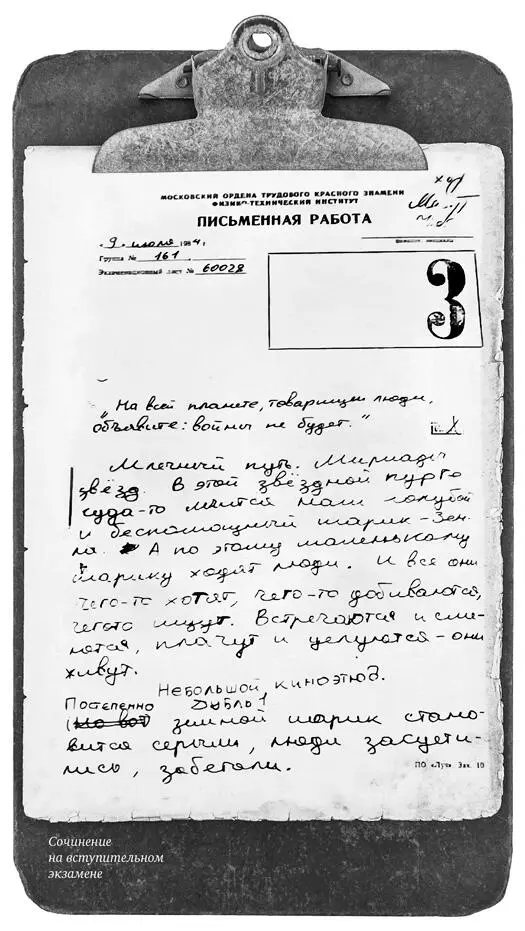 МОСКОВСКИЙ ОРДЕНА ТРУДОВОГО КРАСНОГО ЗНАМЕНИ
ФИЗИКО-ТЕХНИЧЕСКИЙ ИНСТИТУТ
ПИСЬМЕННАЯ РАБОТА
"9" июля 1984 г.
Группа № 161
Экзаменационный лист № 60028
3
"На всей планете, товарищи люди,
объявите: войны не будет."
Млечный путь. Мириады
звёзд. В этой звёздной пурге
куда-то мчится наш голубой
и беспомощный шарик-Зем-
ля. А по этому маленькому
шарику ходят люди. И все они
чего-то хотят, чего-то добиваются,
чегото ищут. Встречаются и сме-
ются, плачут и целуются - они
живут.
Небольшой киноэтюд.
Постепенно Дубль 1
(но вот) земной шарик стано-
вится серым, люди засуети-
лись, забегали.
ПО «Луч» Зак. 10
Сочинение
на вступительном
экзамене